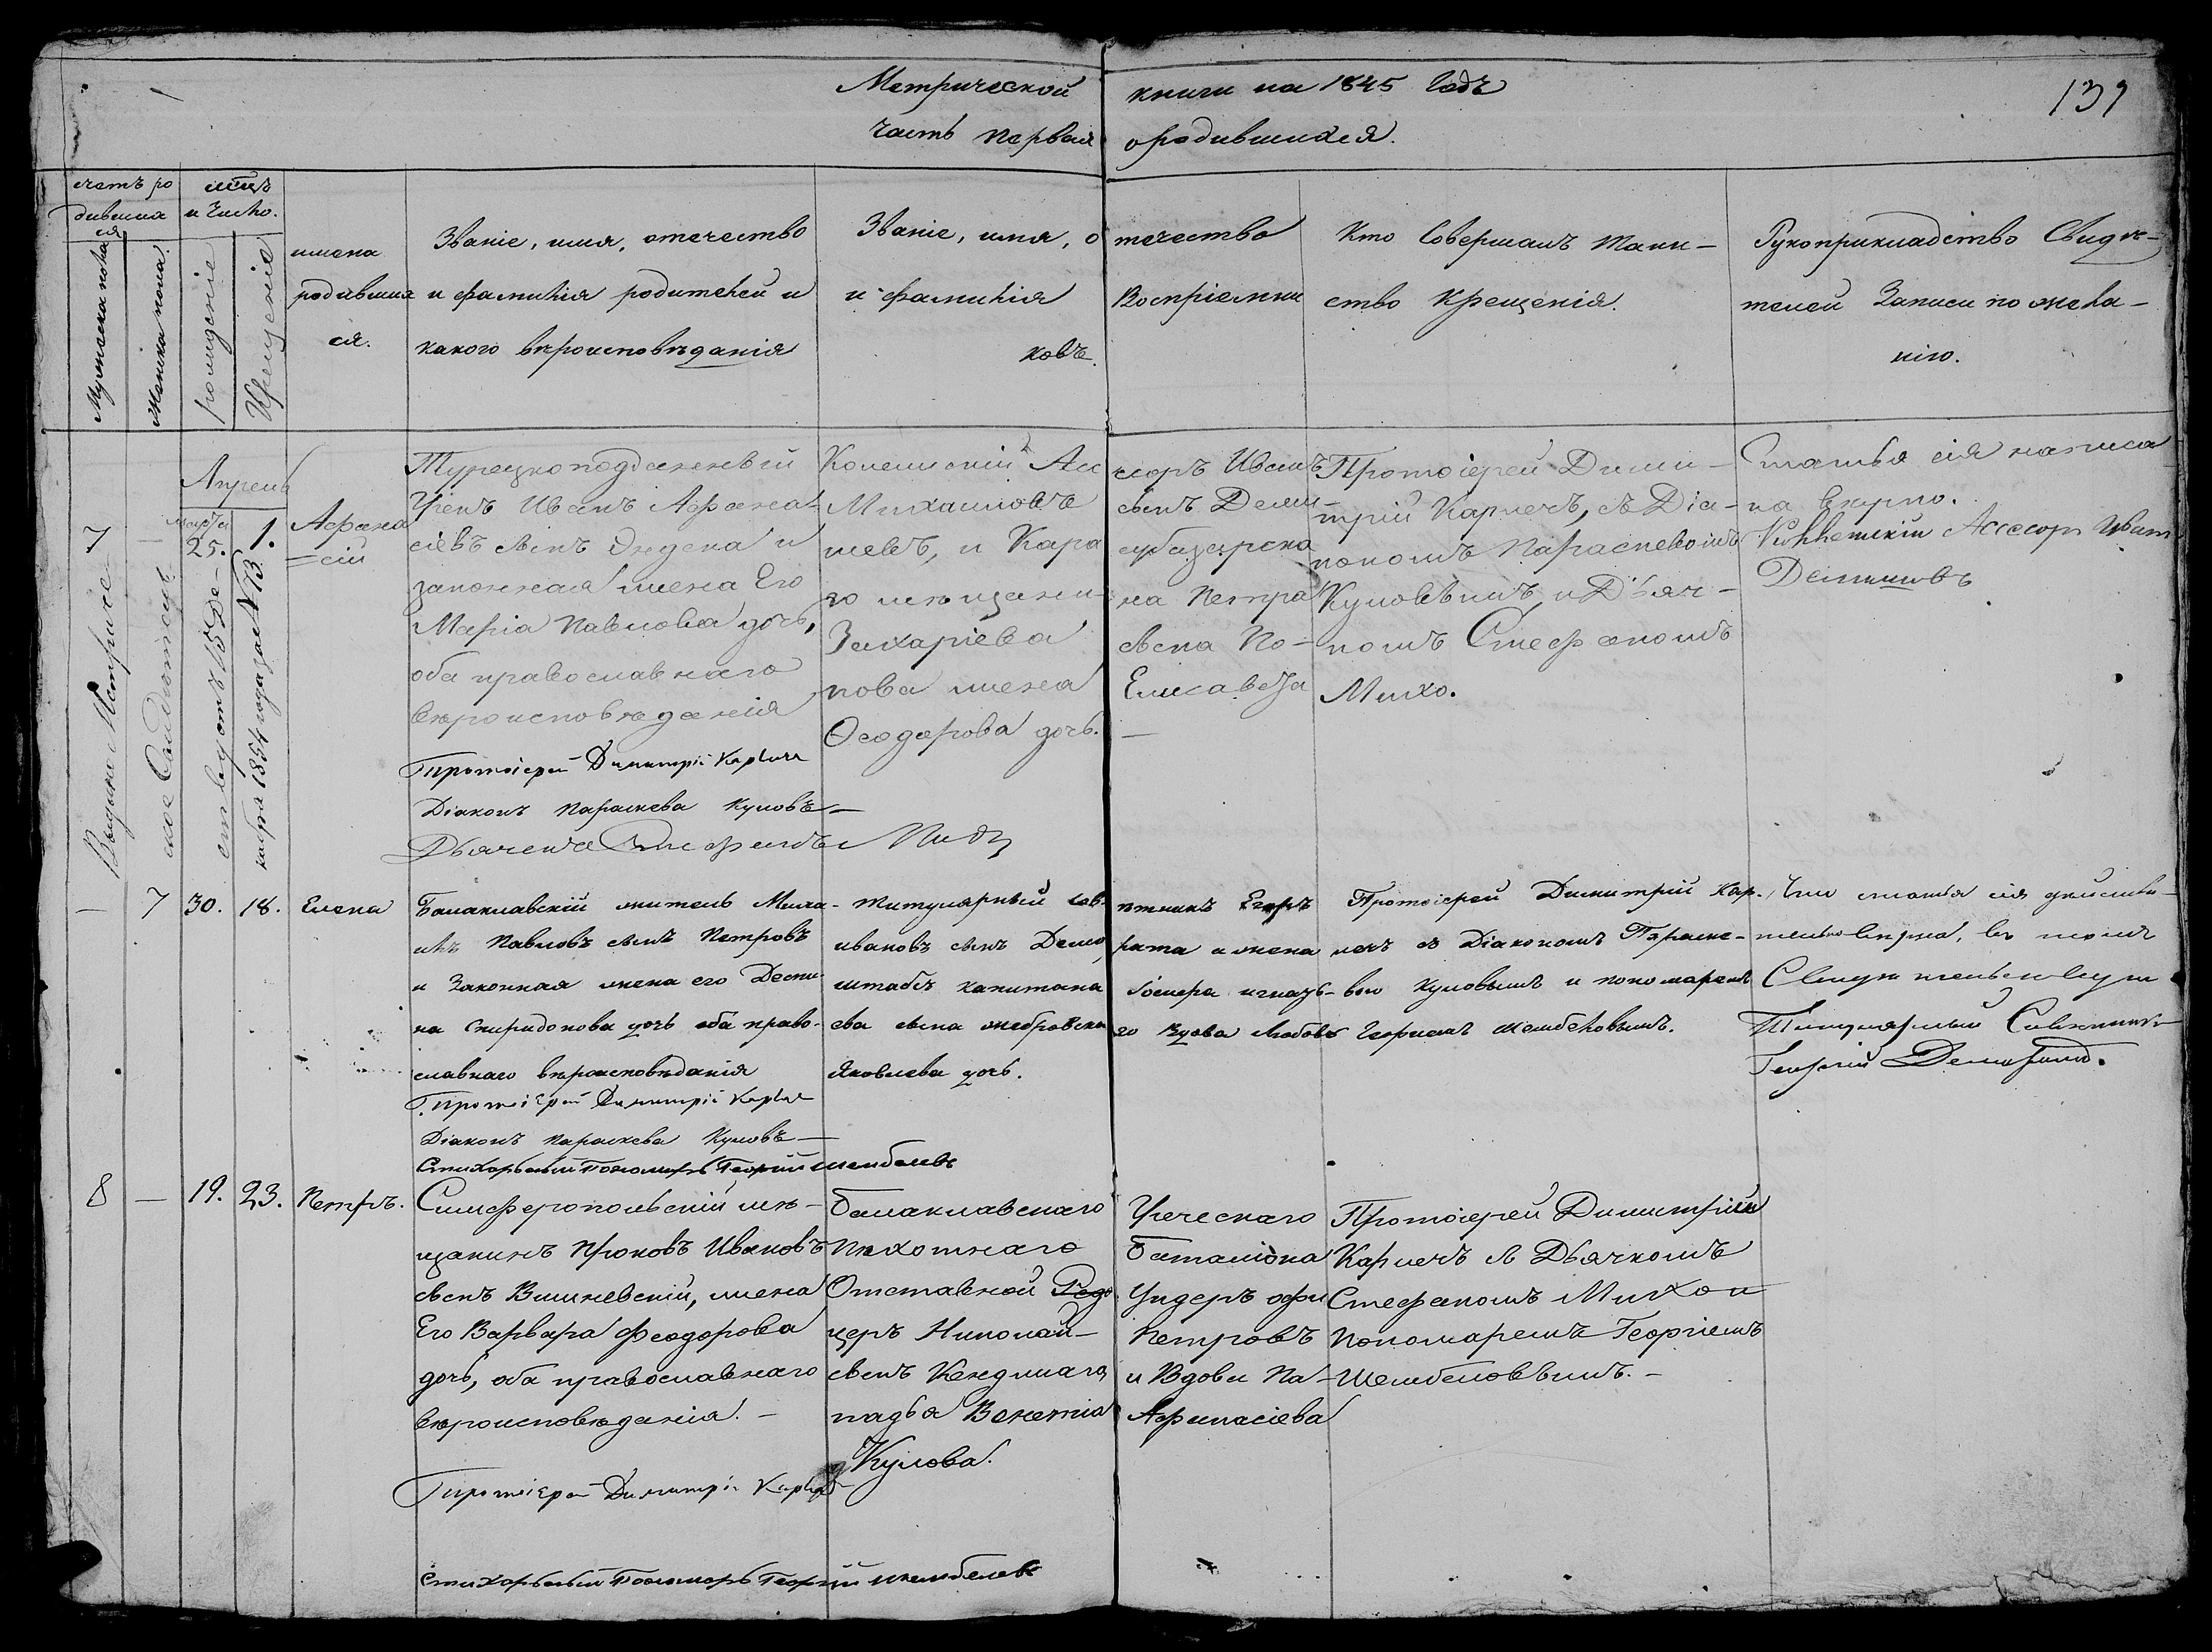 Метрической книги на 1845 Годъ
139
Часть первая о родившихся.
счетъ родившихся
Мужеска пола
Женска пола
мѣсяцъ и Число.
рожденіе
Крещеніе
имена
родивших
ся.
Званіе, имя, отечество
и фамилія родителей и
какого вѣроисповѣданія
Званіе, имя, отечество
и фамилія Воспріемни
ковъ.
Кто Совершалъ Таин-
ство Крещенія.
Рукоприкладство Свидѣ-
телей Записи по жела-
нію.
Апрель
7
—
марта
25.
1.
Афана
=сій
Выдана Метриче
ское Свидѣтельс
ство 15 Де-
кабря 1854 года за № 73.
Турецкоподданный
Грекъ Иванъ Афана-
сіевъ сынъ и
законная жена Его
Марія Павлова дочь,
оба православнаго
вѣроисповѣданія
Протоіерей Димитрій
Діаконъ Параскева Кумовъ
Дьячекъ Стефанъ
Колежскій Ассесоръ Иванъ
Михайловъ сынъ Деми-
шевъ, и Карасубазарска
го мѣщанина Петра
Захаріева сына По-
пова жена Елисавета
Феодорова дочь. —
Протоіерей Дими-
трій Карпечъ, съ Діа-
кономъ Параскевоимъ
Кумовымъ и Дьяч-
комъ Стефаномъ
Михо.
Статья сія написа
на вѣрно.
Коллежскій Ассесоръ Иван
— 7 30. 18. Елена
Балаклавскій житель Миха-
илъ Павловъ сынъ Петровъ
и Законная жена его Деспи
на Спиридонова дочь оба право-
славнаго вѣроисповѣданія
Протоіерей Димитрій
Діаконъ Параскева Кумовъ
Стихарный Пономарь Георгій
титулярный совѣтникъ Егоръ
ивановъ сынъ и жена
штабсъ капитана
сына
го вдова Любовь
Яковлева дочь.
Протоіерей Димитрій Кар-
печъ съ Діакономъ Параске-
вою Кумовымъ и пономаремъ
Георгіемъ
Что статья сія дѣйстви-
тельно вѣрна, въ томъ
Свидѣтельствую
Титулярный Совѣтникъ
Георгій
8 — 19. 23. Петръ.
Симферопольскій мѣ-
щанинъ Прокопъ Ивановъ
сынъ Вишневскій, жена
Его Варвара Феодорова
дочь, оба православнаго
вѣроисповѣданія. —
Протоіерей Димитрій
Стихарный Пономарь Георгій
Балаклавскаго Греческаго
Пѣхотнаго баталіона
Отставной Ундеръ офи
церъ Николай Петровъ
сынъ и Вдова Па-
падья Афанасіева
Кумова.
Протоіерей Димитрій
Карпечъ съ Дьячкомъ
Стефаномъ Михо и
пономаремъ Георгіемъ
Шембеловымъ. —